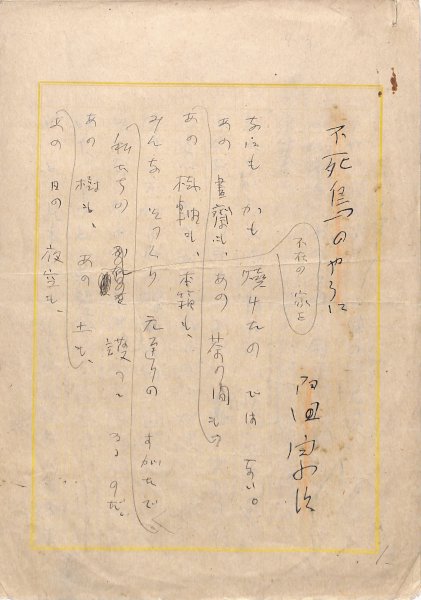 不死鳥のやうに
不在の家を
内田
なにもかも燒けたのではない。
あの書齋も、あの茶の間も、
あの掛軸も、本箱も、
みんなそつくり元通りのすがたで、
私たちの を護つてゐるのだ。
あの樹も、あの土も、
あの日の夜空も、